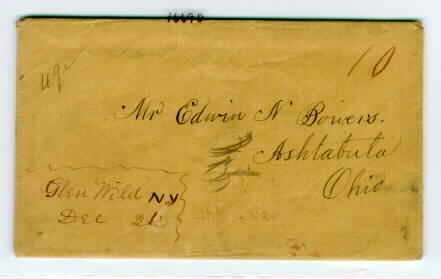 10
Mr Edwin N Bowers.
Ashtabula
Ohio
Glen Wild N.Y
Dec 21